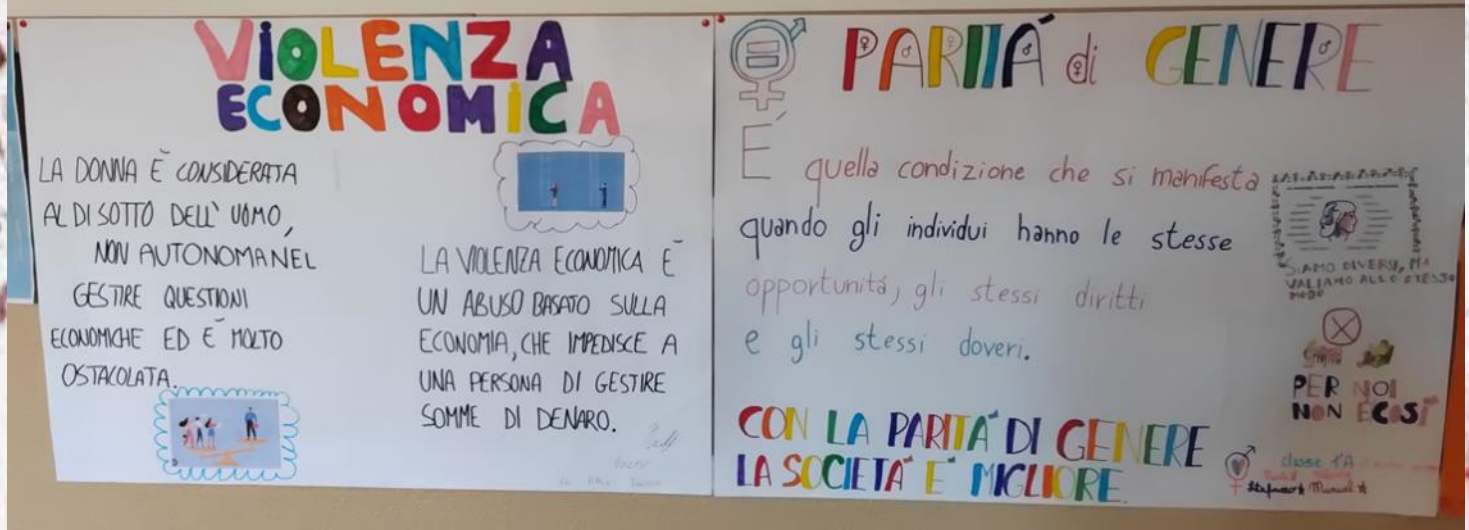 VIOLENZA
ECONOMICA
LA DONNA É CONSIDERATA
AL DI SOTTO DELL' UOMO,
NON AUTONOMA NEL
GESTIRE QUESTIONI
ECONOMICHE ED É MOLTO
OSTACOLATA.
LA VIOLENZA ECONOMICA É
UN ABUSO BASATO SULLA
ECONOMIA, CHE IMPEDISCE A
UNA PERSONA DI GESTIRE
SOMME DI DENARO.
PARITÁ di GENERE
É quella condizione che si manifesta
quando gli individui hanno le stesse
opportunitá, gli stessi diritti
e gli stessi doveri.
SIAMO DIVERSI, MA
VALIAMO ALLO STESSO
MODO
PER NOI
NON É COSÍ
CON LA PARITÁ DI GENERE
LA SOCIETÁ É MIGLIORE.
classe 1A
Stefano Manuel